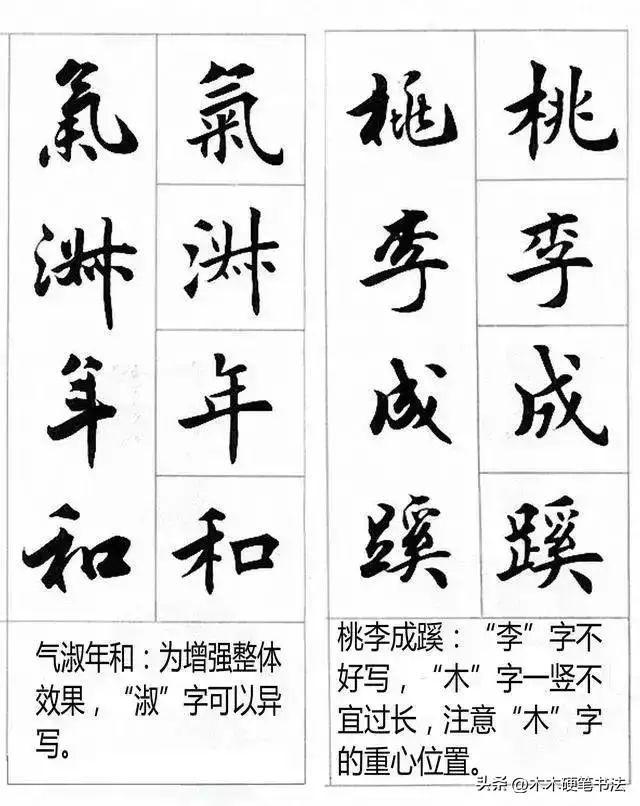 氣淑年和
氣淑年和
气淑年和：为增强整体
效果，“淑”字可以异
写。
桃李成蹊
桃李成蹊
桃李成蹊：“李”字不
好写，“木”字一竖不
宜过长，注意“木”字
的重心位置。
头条@木木硬笔书法